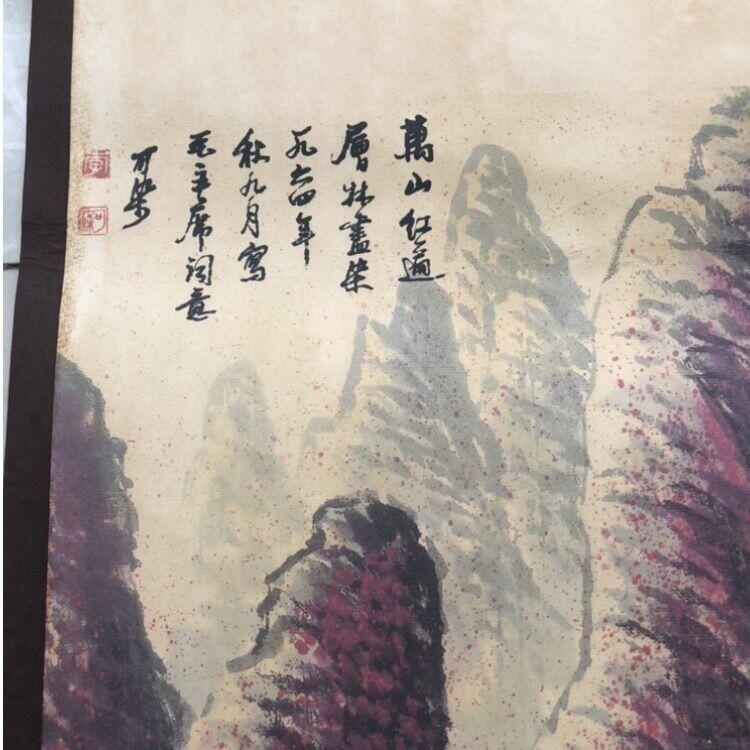 萬山红遍
層林盡染
一九六四年
秋九月寫
毛主席词意
可染
李